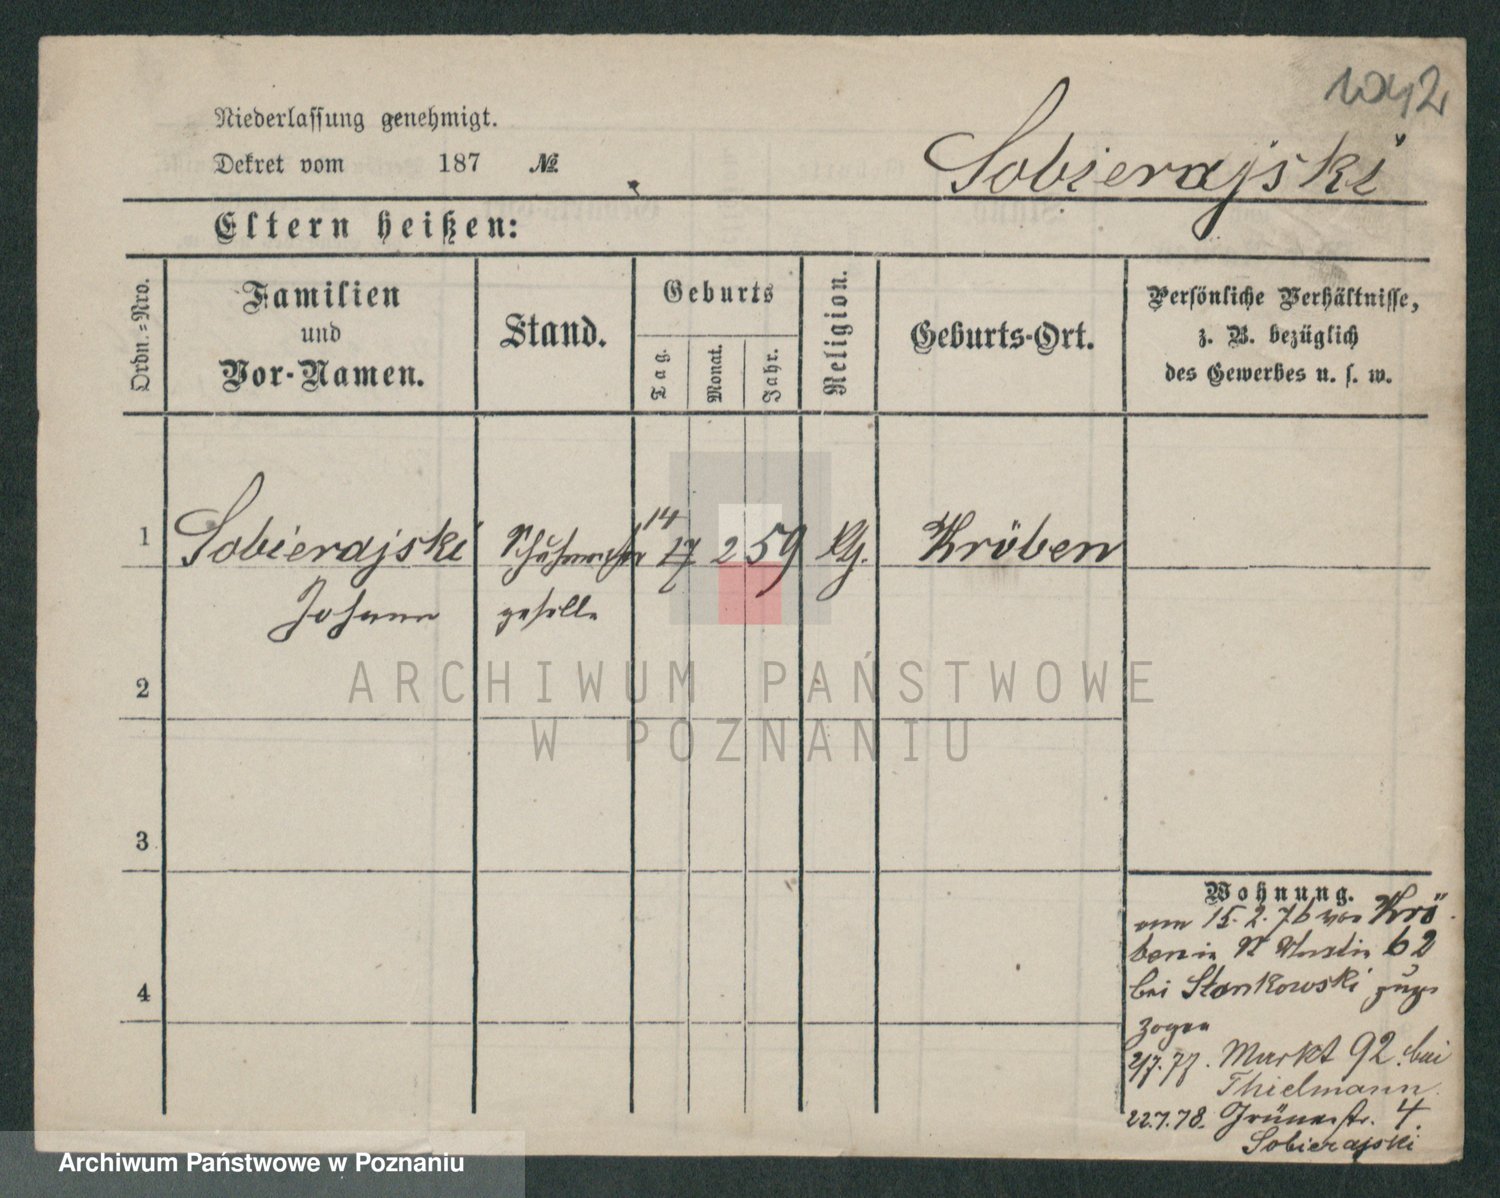 1042
Niederlassung genehmigt.
Dekret vom 187 №
Sobierajski
Eltern heißen:
Ordn.=Nro.
Familien
und
Vor-Namen.
Stand.
Geburts
Tag.
Monat.
Jahr.
Religion.
Geburts-Ort.
Persönliche Verhältnisse,
z. B. bezüglich
des Gewerbes u. s. w.
14
1 Sobierajski Schuhmacher 17 2 59 Kröben
Johann geselle
2
3
4
Wohnung.
15. 2. 76 von Krö
ben in 62
bei Stankowski zuge
zogen
Markt 92. bei
Thielmann
22.7.78. Grünestr. 4.
Sobierajski
ARCHIWUM PAŃSTWOWE
W POZNANIU
Archiwum Państwowe w Poznaniu